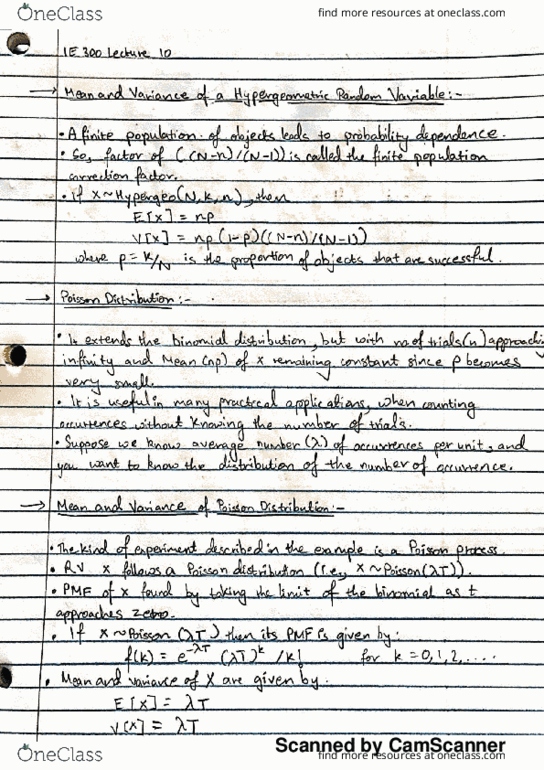 OneClass
find more resources at oneclass.com
IE 300 Lecture 10
→ Mean and Variance of a Hypergeometric Random Variable:-
• A finite population of objects leads to probability dependence.
• So, factor of ((N-n)/(N-1)) is called the finite population
correction factor.
• If X~Hypergeo(N,k,n), then
E[X] = np
V[X] = np(1-p)((N-n)/(N-1))
where p=k/N is the proportion of objects that are successful.
→ Poisson Distribution:-
• It extends the binomial distribution, but with no of trials(n) approaching
infinity and Mean (np) of x remaining constant since p becomes
very small.
• It is useful in many practical applications, when counting
occurrences without knowing the number of trials.
• Suppose we know average number (λ) of occurrences per unit, and
you want to know the distribution of the number of occurrence.
→ Mean and Variance of Poisson Distribution:-
• The kind of experiment described in the example is a Poisson process.
• RV x follows a Poisson distribution (i.e., X~Poisson(λT)).
• PMF of x found by taking the limit of the binomial as t
approaches zero.
• If X~Poisson (λT) then its PMF is given by:
f(k) = e^-λT (λT)^k / k! for k = 0,1,2,....
• Mean and variance of X are given by:
E[X] = λT
V[X] = λT
Scanned by CamScanner
OneClass
find more resources at oneclass.com